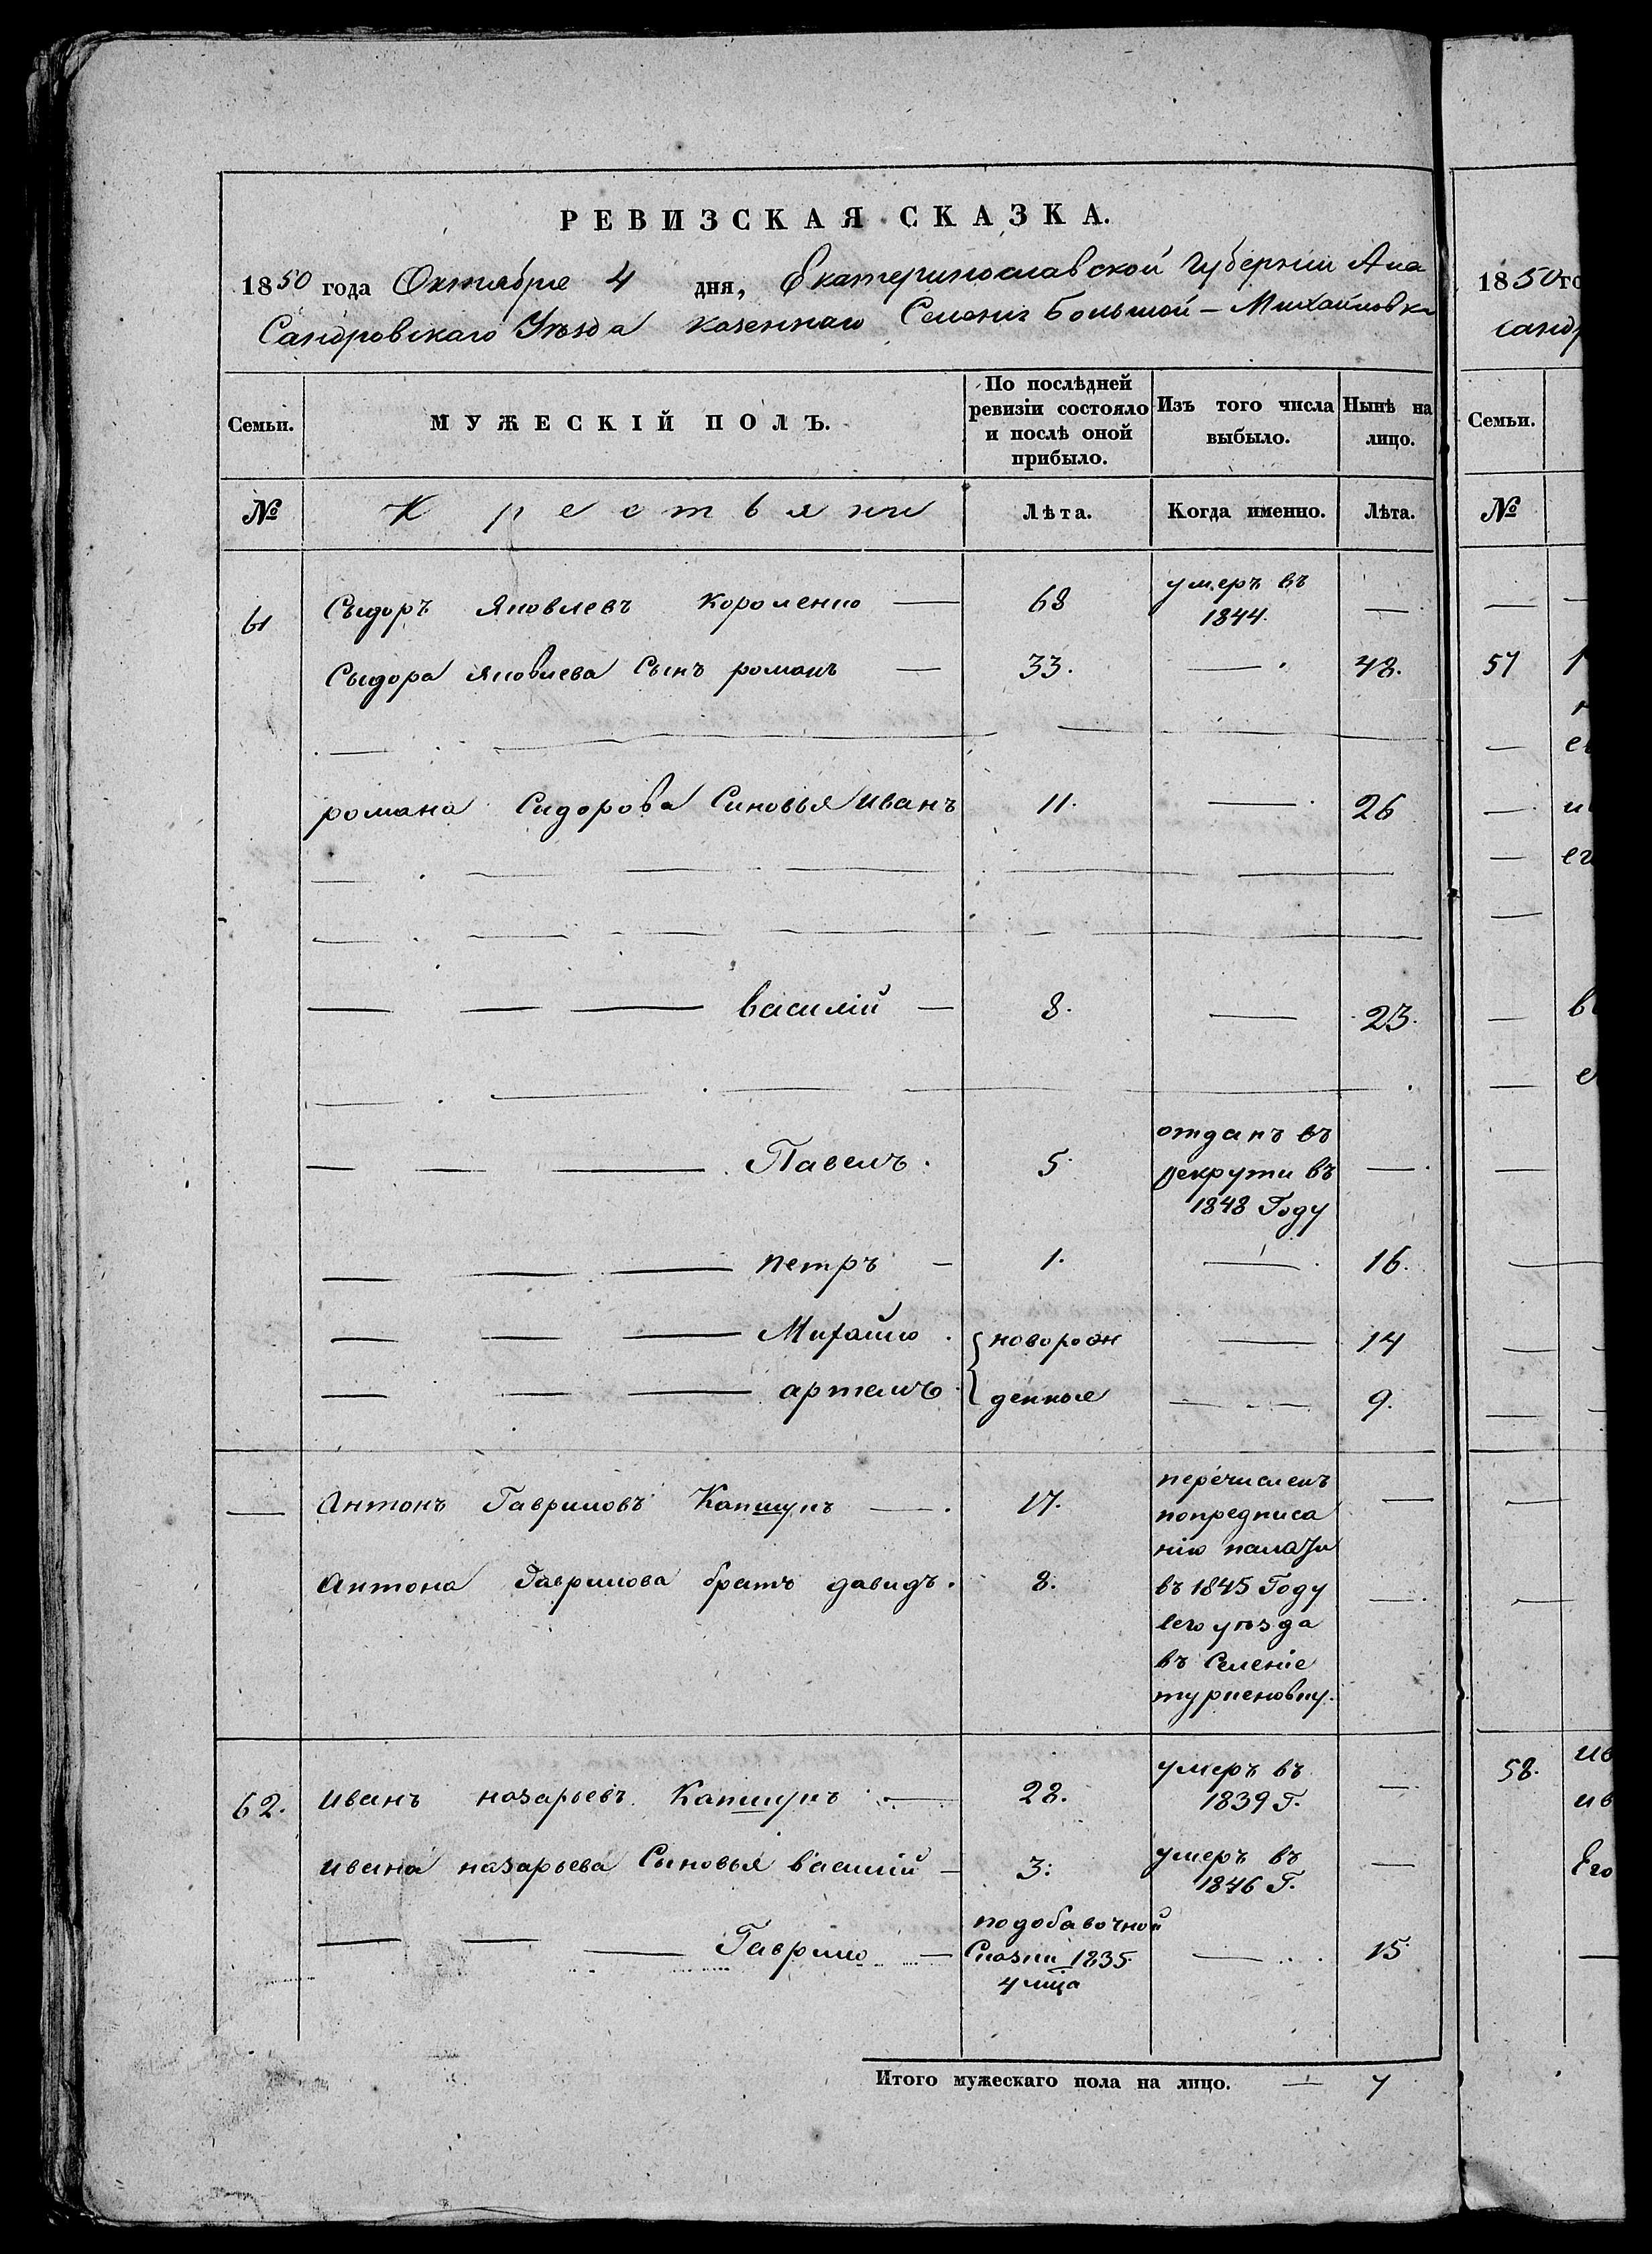 РЕВИЗСКАЯ СКАЗКА.
1850 года Октября 4 дня, Екатеринославской Губернии Алек
Сандровскаго Уѣзда казеннаго Селения Большой-Михайловки
Семьи. МУЖЕСКІЙ ПОЛЪ. По послѣдней ревизіи состояло и послѣ оной прибыло. Изъ того числа выбыло. Нынѣ на лицо.
№ Крестьяни Лѣта. Когда именно. Лѣта.
61 Сыдоръ Яковлевъ Короленко — 68 умеръ въ 1844. —
Сыдора Яковлева Сынъ романъ — 33. — 48.
романа Сидорова Синовья иванъ 11. — 26
— — — василій — 8. — 23.
— — — Павелъ. 5. отданъ въ
рекрути въ —
1848 Году
— — — петръ — 1. — 16.
— — — Михайло. новорож — 14
— — — артемъ. денные — 9.
— Антонъ Гавриловъ Капшукъ — 17. перечисленъ —
попредписа
нію палаты
Антона Гаврилова братъ давидъ. 8. въ 1845 Году —
сего уѣзда
въ Селеніе
турке­новку.
62. иванъ назарьевъ Капшукъ — 28. умеръ въ 1839 Г. —
ивана назарьева Сыновья василій — 3. умеръ въ 1846 Г. —
— — — Гаврило — подобавочной
Сказки 1835 — 15
Итого мужескаго пола на лицо. — 7
1850 го
сандр
Семьи.
№
57
58. ив
ив
Его